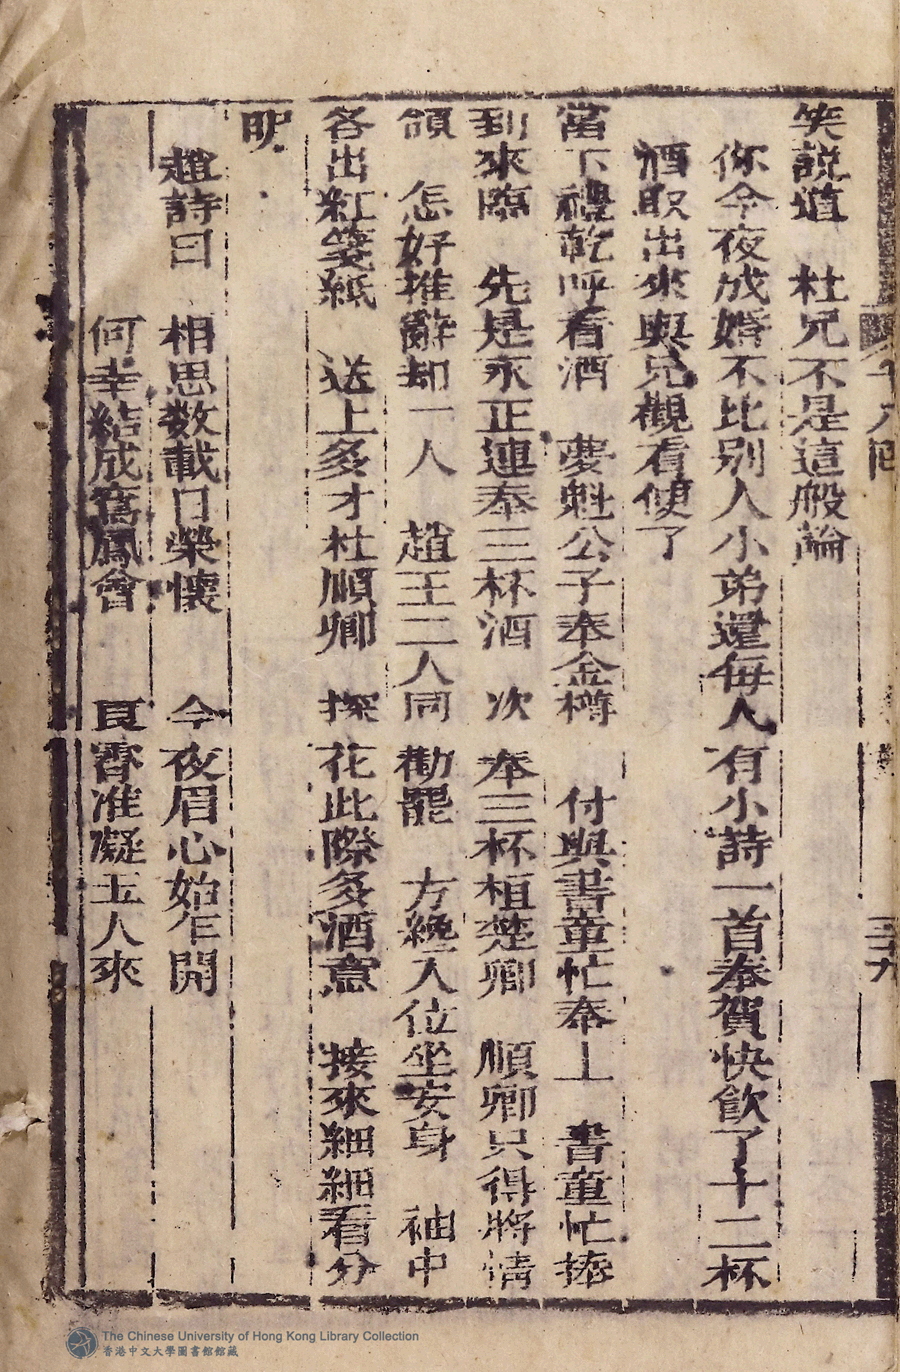 笑説道　杜兄不是這般論
你今夜成婚不比别人小弟還每人有小詩一首奉賀快飲了十二杯
酒取出來與兄觀看便了
當下禮乾呼看酒　夢魁公子奉金樽　付與書童忙奉上　書童忙捧
到來臨　先是永正連奉三杯酒　次奉三杯植楚卿　順卿只得將情
領　怎好推辭却一人　趙王二人同勸罷　方纔入位坐安身　袖中
各出紅箋紙　送上多才杜順卿　探花此際多酒意　接來細細看分
明
趙詩曰　相思数載日縈懷　今夜眉心始乍開
何幸結成鸞鳳會　良宵准凝玉人來
十八回
三十九
The Chinese University of Hong Kong Library Collection
香港中文大學圖書館館藏